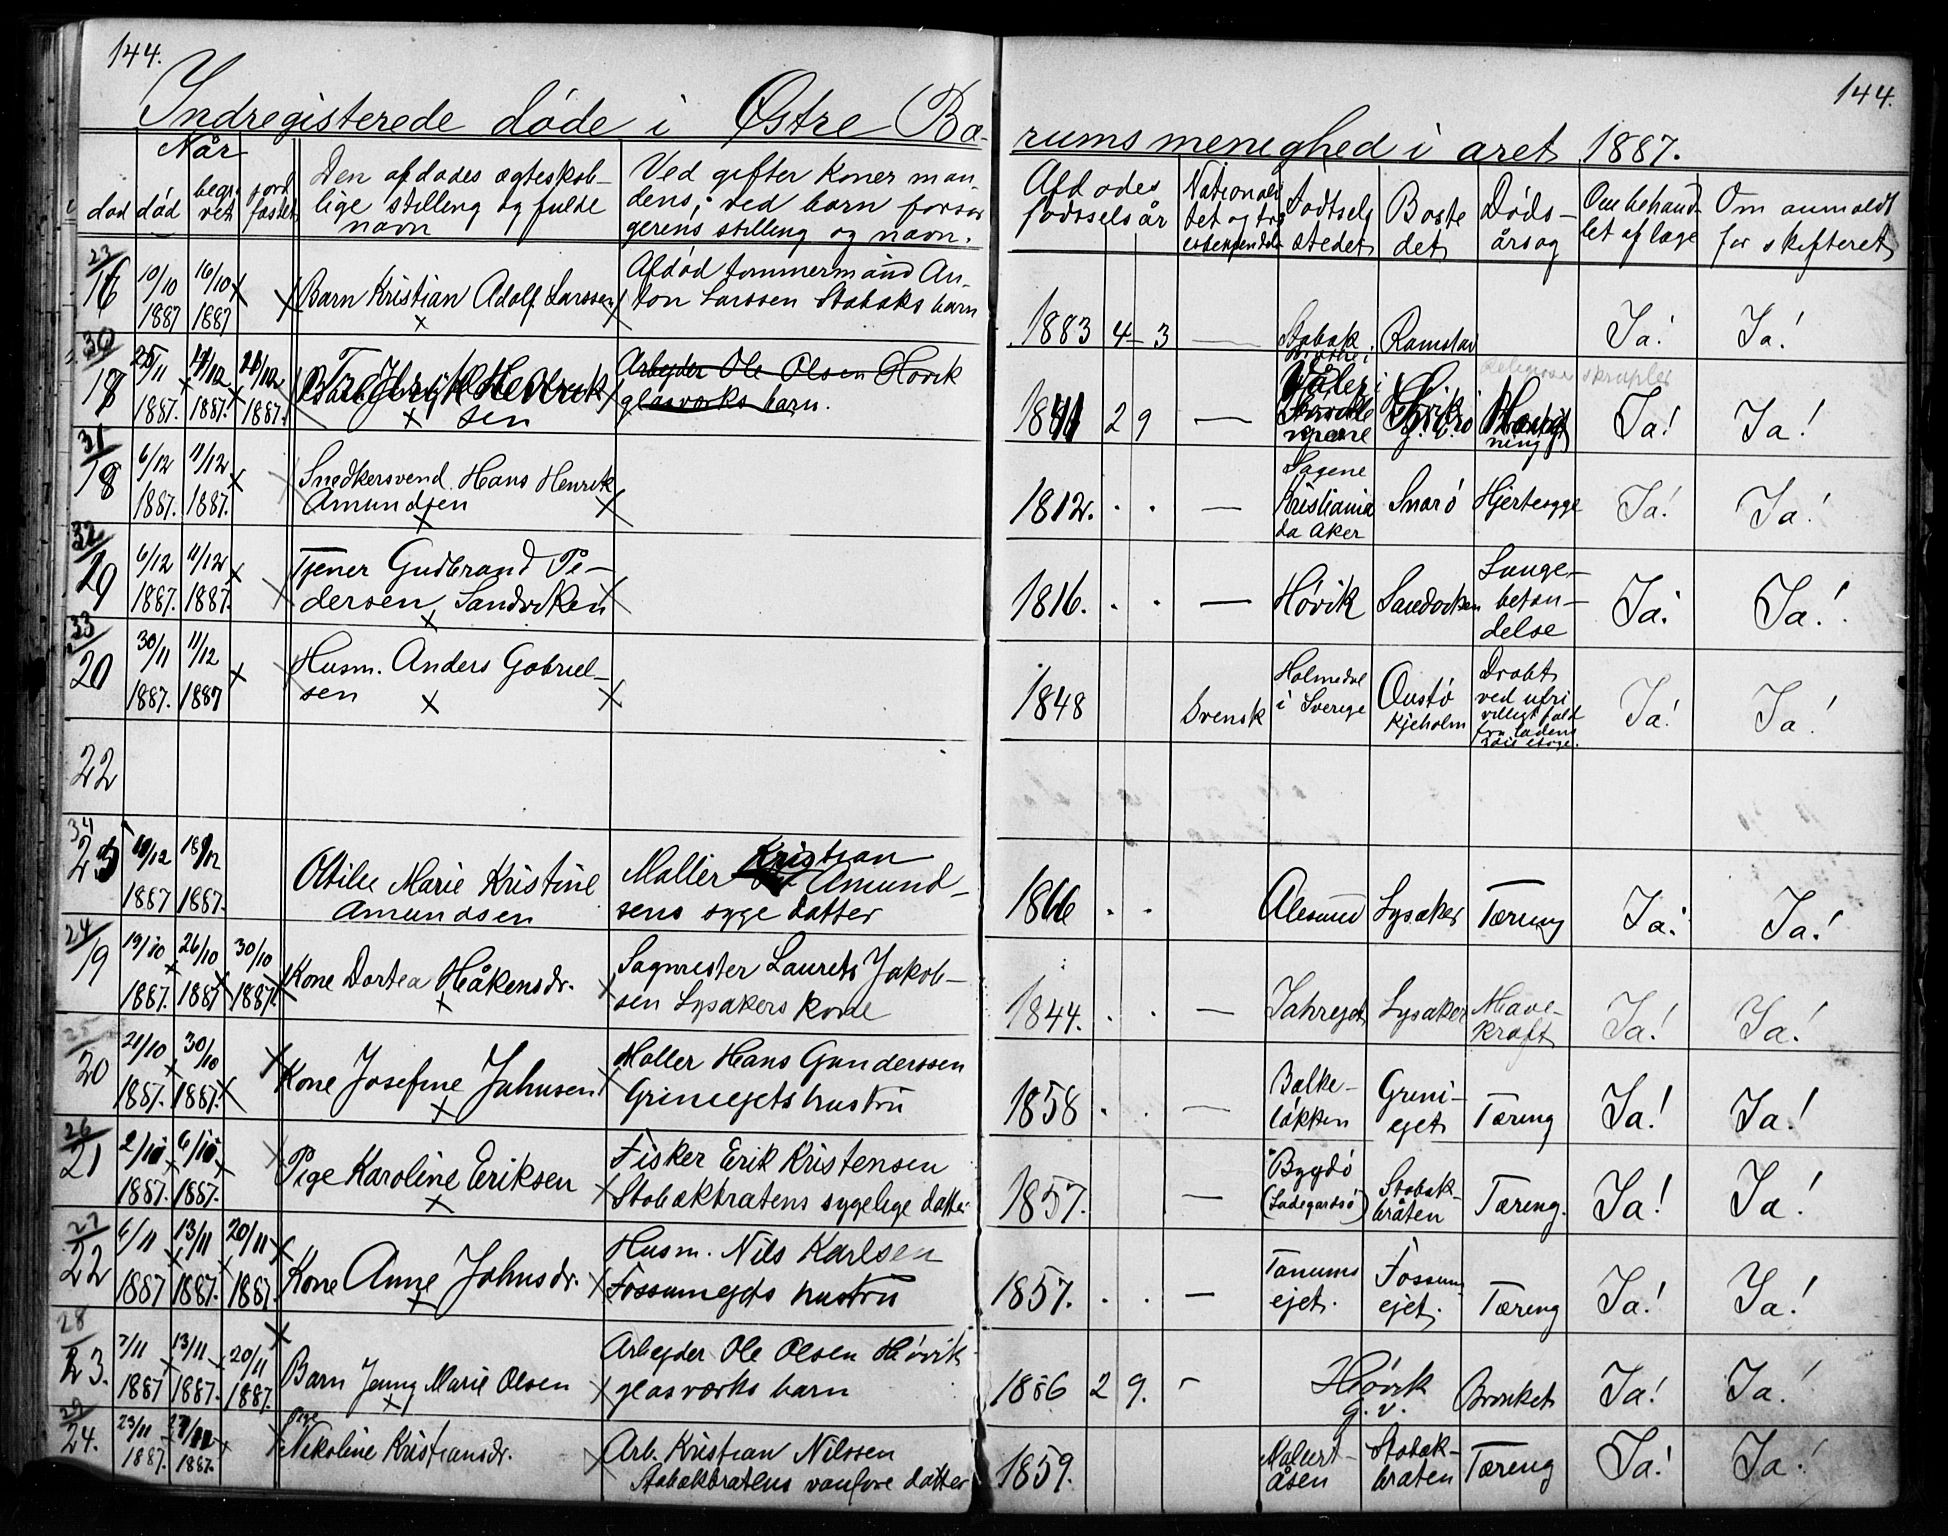 144.
144.
Indregisterede døde i Østre Bæ-
rums menighed i aret 1887.
Når
død død begr vet jord fæstet
Den afdødes ægteskab-
lige stilling og fulde
navn
Ved gifter Koner man-
dens, ved barn forsør
gerens stilling og navn.
Afdødes
fødselsår
Nationali
tet og tro
Fødtsels
stedet
Boste
det
Døds-
årsag
Om behand-
let af læge
Om anmeldt
for skifteret
23/16 10/10 1887 16/10 1887 x
Barn Kristian Adolf Larssen
Afdød tømmermand An-
ton Larssen Stabæks barn
1883 4 3 — Stabæk Ramstad Ja! Ja!
30/17 1887. 1887. 1887.
sen
Arbejder Ole Olsen Høvik
glasværks barn.
2 9 — Ja! Ja!
31/18 6/12 1887. 11/12 1887. x
Snedkersvend Hans Henrik
Amundsen
1812. . . — Sagene
Kristiania
da Aker
Snarø Hjertesyge Ja! Ja!
32/19 6/12 1887. 11/12 1887. x
Tjener Gudbrand Pe-
dersen, Sandviken
1816. . . — Høvik Sandviken
Lunge-
betæn-
delse
Ja! Ja!
33/20 30/11 1887. 11/12 1887 x
Husm. Anders Gabriel-
sen
1848 Svensk
Holmedal
i Sverige
Oustø
Kjeholm
Dræbt
ved ufri
villigt fald
fra ladens
Ja! Ja!
22
34
23 /12 1887 18/12 1887.
Otilie Marie Kristine
Amundsen
Møller Kristian Amund-
sens syge datter
1866 . . Alesund Lysaker Tæring Ja! Ja!
24/19 19/10 1887. 26/10 1887 30/10 1887.
Kone Dortea Håkensdr.
Sagmester Laurets Jakob-
sen Lysakers kone
1844. . . — Jahrejet Lysaker
Mave-
kræft
Ja! Ja!
25/20 21/10 1887. 30/10 1887. x
Kone Josefine Johnsen
Møller Hans Gunderssen
Griniejets hustru
1858 . . —
Bælke-
løkken
Grini-
ejet
Tæring Ja! Ja!
26/21 2/10 1887. 6/10 1887.
Pige Karoline Eriksen
Fisker Erik Kristensen
Stabækbråtens sygelige datter
1857. —
Bygdø
(Ladegardsø)
Stabæk-
bråten
Tæring. Ja! Ja!
27/22 6/11 1887 13/11 1887. 20/11 1887.
Kone Anne Johnsdr.
Husm. Nils Karlsen
Fossumejets hustru
1857. . . —
Tanums
ejet.
Fossum
ejet.
Tæring Ja! Ja!
28/23. 7/11 1887 13/11 1887. 20/11 1887.
Barn Jenny Marie Olsen
Arbejder Ole Olsen Høvik
glasværks barn
1886 2 9. -
Høvik
g. v.
Bronket Ja! Ja!
29/24. 23/11 1887. 1887.
Pige
Nikoline Kristiansdr.
Arb. Kristian Nilssen
Stabækbråtens vanføre datter
1859.
åsen
Stabæk-
bråten
Tæring Ja! Ja!